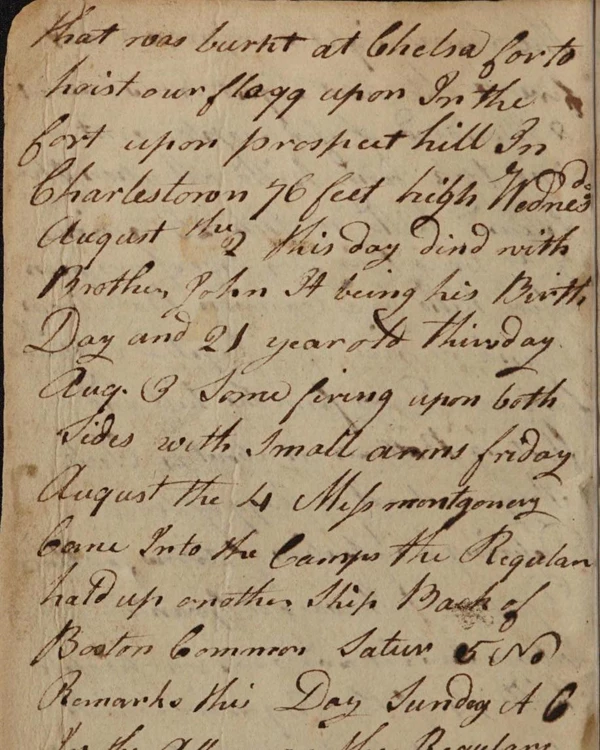 that was burnt at Chelsa for to
hoist our flagg upon In the
fort upon prospect hill In
Charlestown 76 feet high Wednesd
August the 2 this day dind with
Brother John It being his Birth
Day and 21 year old thirsday
Aug. 3 Some firing upon both
Sides with Small arms friday
August the 4 Mess montgomery
Came Into the Camps the Regulars
hald up another Ship Back of
Boston Common Satur 5 No
Remarks this Day Sunday A 6
In the the Regulars